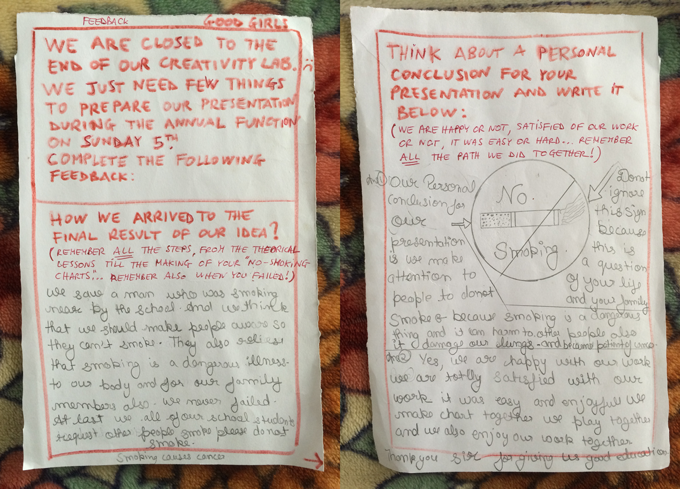 FEEDBACK
GOOD GIRLS
WE ARE CLOSED TO THE
END OF OUR CREATIVITY LAB.
WE JUST NEED FEW THINGS
TO PREPARE OUR PRESENTATION
DURING THE ANNUAL FUNCTION
ON SUNDAY 5TH.
COMPLETE THE FOLLOWING
FEEDBACK:
HOW WE ARRIVED TO THE
FINAL RESULT OF OUR IDEA?
(REMEMBER ALL THE STEPS, FROM THE THEORICAL
LESSONS TILL THE MAKING OF YOUR "NO-SMOKING
CHARTS"... REMEMBER ALSO WHEN YOU FAILED!)
We saw a man who was smoking
near by the school. And we think
that we should make people aware so
they can't smoke. They also
that smoking is a dangerous illness.
to our body and for our family
members also. We never failed.
At last we all of our school students
request other people smoke please do not
smoke.
Smoking causes cancer
THINK ABOUT A PERSONAL
CONCLUSION FOR YOUR
PRESENTATION AND WRITE IT
BELOW:
(WE ARE HAPPY OR NOT, SATISFIED OF OUR WORK
OR NOT, IT WAS EASY OR HARD... REMEMBER
ALL THE PATH WE DID TOGETHER!)
Our Personal
conclusion for
our
presentation
is we make
attention to
people to donot
No.
Smoking.
Donot
ignore
this sign
because
this is
a question
of your life
and your family
Smoke because smoking is a dangerous
thing and is can harm to other people also
it damage our lungs. and became patient of
Yes, we are happy with our work
we are totlly satisfied with our
work it was easy and enjoyfull we
make chart together we play together
and we also enjoy our work together
Thank you sir for giving us good education